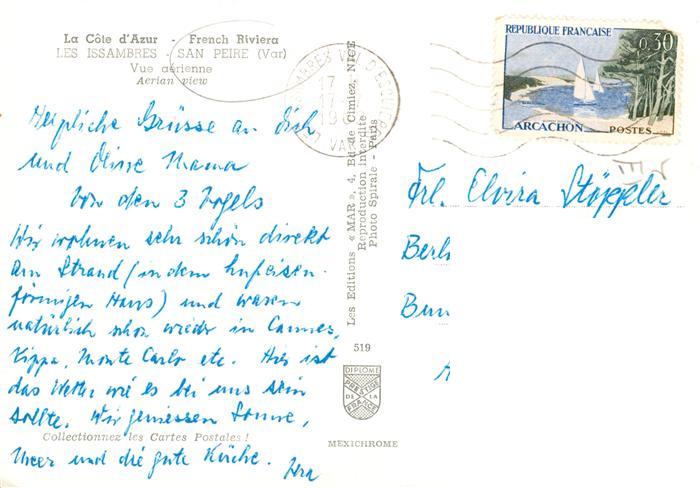 La Côte d'Azur - French Riviera
LES ISSAMBRES - SAN PEIRE (Var)
Vue aérienne
Aerian view
Herzliche Grüsse an dich
und Deine Mama
Von den 3 Vogels
Wir wohnen sehr schön direkt
am Strand (in dem hufeisen-
förmigen Haus) und waren
natürlich schon wieder in Cannes,
Nizza, Monte Carlo etc. Hier ist
das Wetter wie es bei uns sein
sollte. Wir geniessen Sonne,
Collectionnez les Cartes Postales !
Meer und die gute Küche.
Les Editions « MAR », 4, Bd de Cimiez, NICE
Reproduction interdite
Photo Spirale - Paris
519
DIPLOME
PRESTIGE
DE LA
FRANCE
MEXICHROME
17
17
19
VAR
REPUBLIQUE FRANÇAISE
0,30
ARCACHON POSTES
Frl. Elvira Stöppler
Berl
Bun